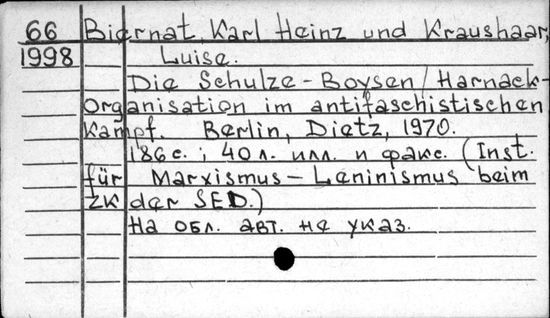 66 Biernat, Karl Heinz und Kraushaar,
1998 Luise.
Die Schulze-Boysen/Harnack-
Organisation im antifaschistischen
Kampf. Berlin, Dietz, 1970.
186 с.; 40 л. илл. и факс. (Inst.
für Marxismus-Leninismus beim
ZK der SED.)
На обл. авт. не указ.